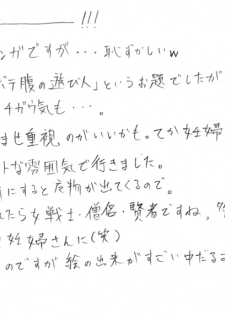 !!!
ンガですが・・・恥ずかしいw
ボテ腹の遊び人」というお題でしたが
チガウ気も・・・。
ませ重視のがいいかも。てか妊婦
トな雰囲気で行きました。
にすると産物が出てくるので。
たら女戦士・僧侶・賢者ですね。
妊婦さんに(笑)
のですが絵の出来がすごい中だるみ